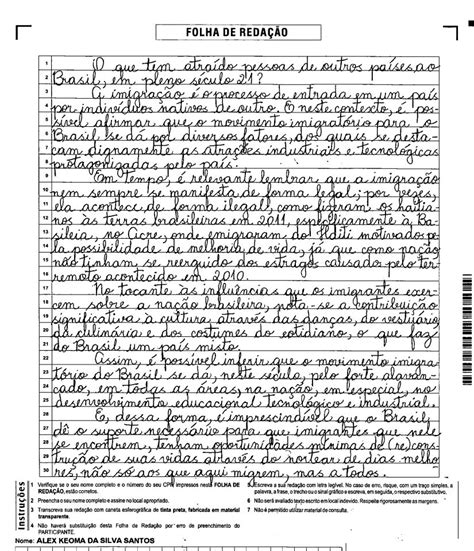 FOLHA DE REDAÇÃO
1 O que tem atraído pessoas de outros países, ao
2 Brasil, em pleno século 21?
3 A imigração é o processo de entrada em um país
4 por indivíduos nativos de outro. E neste contexto, é pos-
5 sível afirmar que o movimento imigratório para o
6 Brasil se dá por diversos fatores, dos quais se desta-
7 cam dignamente as atrações industriais e tecnológicas
8 protagonizadas pelo país.
9 Em tempo, é relevante lembrar que a imigração
10 nem sempre se manifesta de forma legal; por vezes,
11 ela acontece de forma ilegal, como fizeram os haitia-
12 nos às terras brasileiras em 2011, especificamente à Ba-
13 sileia, no Acre, onde emigraram do Haiti motivados pe-
14 la possibilidade de melhoria de vida, já que como nação
15 não tinham se reerguido dos estragos causado pelo ter-
16 remoto acontecido em 2010.
17 No tocante às influências que os imigrantes exer-
18 cem sobre a nação brasileira, nota-se a contribuição
19 significativa à cultura através das danças, do vestiário
20 da culinária e dos costumes do cotidiano, o que faz
21 do Brasil um país misto.
22 Assim, é possível inferir que o movimento imigra-
23 tório do Brasil se dá, neste século, pelo forte alavan-
24 cado, em todas as áreas, na nação, em especial, no
25 desenvolvimento educacional tecnológico e industrial.
26 E, dessa forma, é imprescindível que o Brasil
27 dê o suporte necessário para que imigrantes que nele
28 se encontrem, tenham oportunidades mínimas de (re)cons-
29 trução de suas vidas através do nortear de dias melho-
30 res, não só aos que aqui migrem, mas a todos.
Instruções
1 Verifique se o seu nome completo e o número do seu CPF impressos nesta FOLHA DE REDAÇÃO, estão corretos.
2 Preencha o seu nome completo e assine no local apropriado.
3 Transcreva sua redação com caneta esferográfica de tinta preta, fabricada em material transparente.
4 Não haverá substituição desta Folha de Redação por erro de preenchimento do PARTICIPANTE.
5 Escreva a sua redação com letra legível. No caso de erro, risque, com um traço simples, a palavra, a frase, o trecho ou o sinal gráfico e escreva, em seguida, o respectivo substitutivo.
6 Não será avaliado texto escrito em local indevido. Respeite rigorosamente as margens.
7 Não é permitido utilizar material de consulta.
Nome: ALEX KEOMA DA SILVA SANTOS